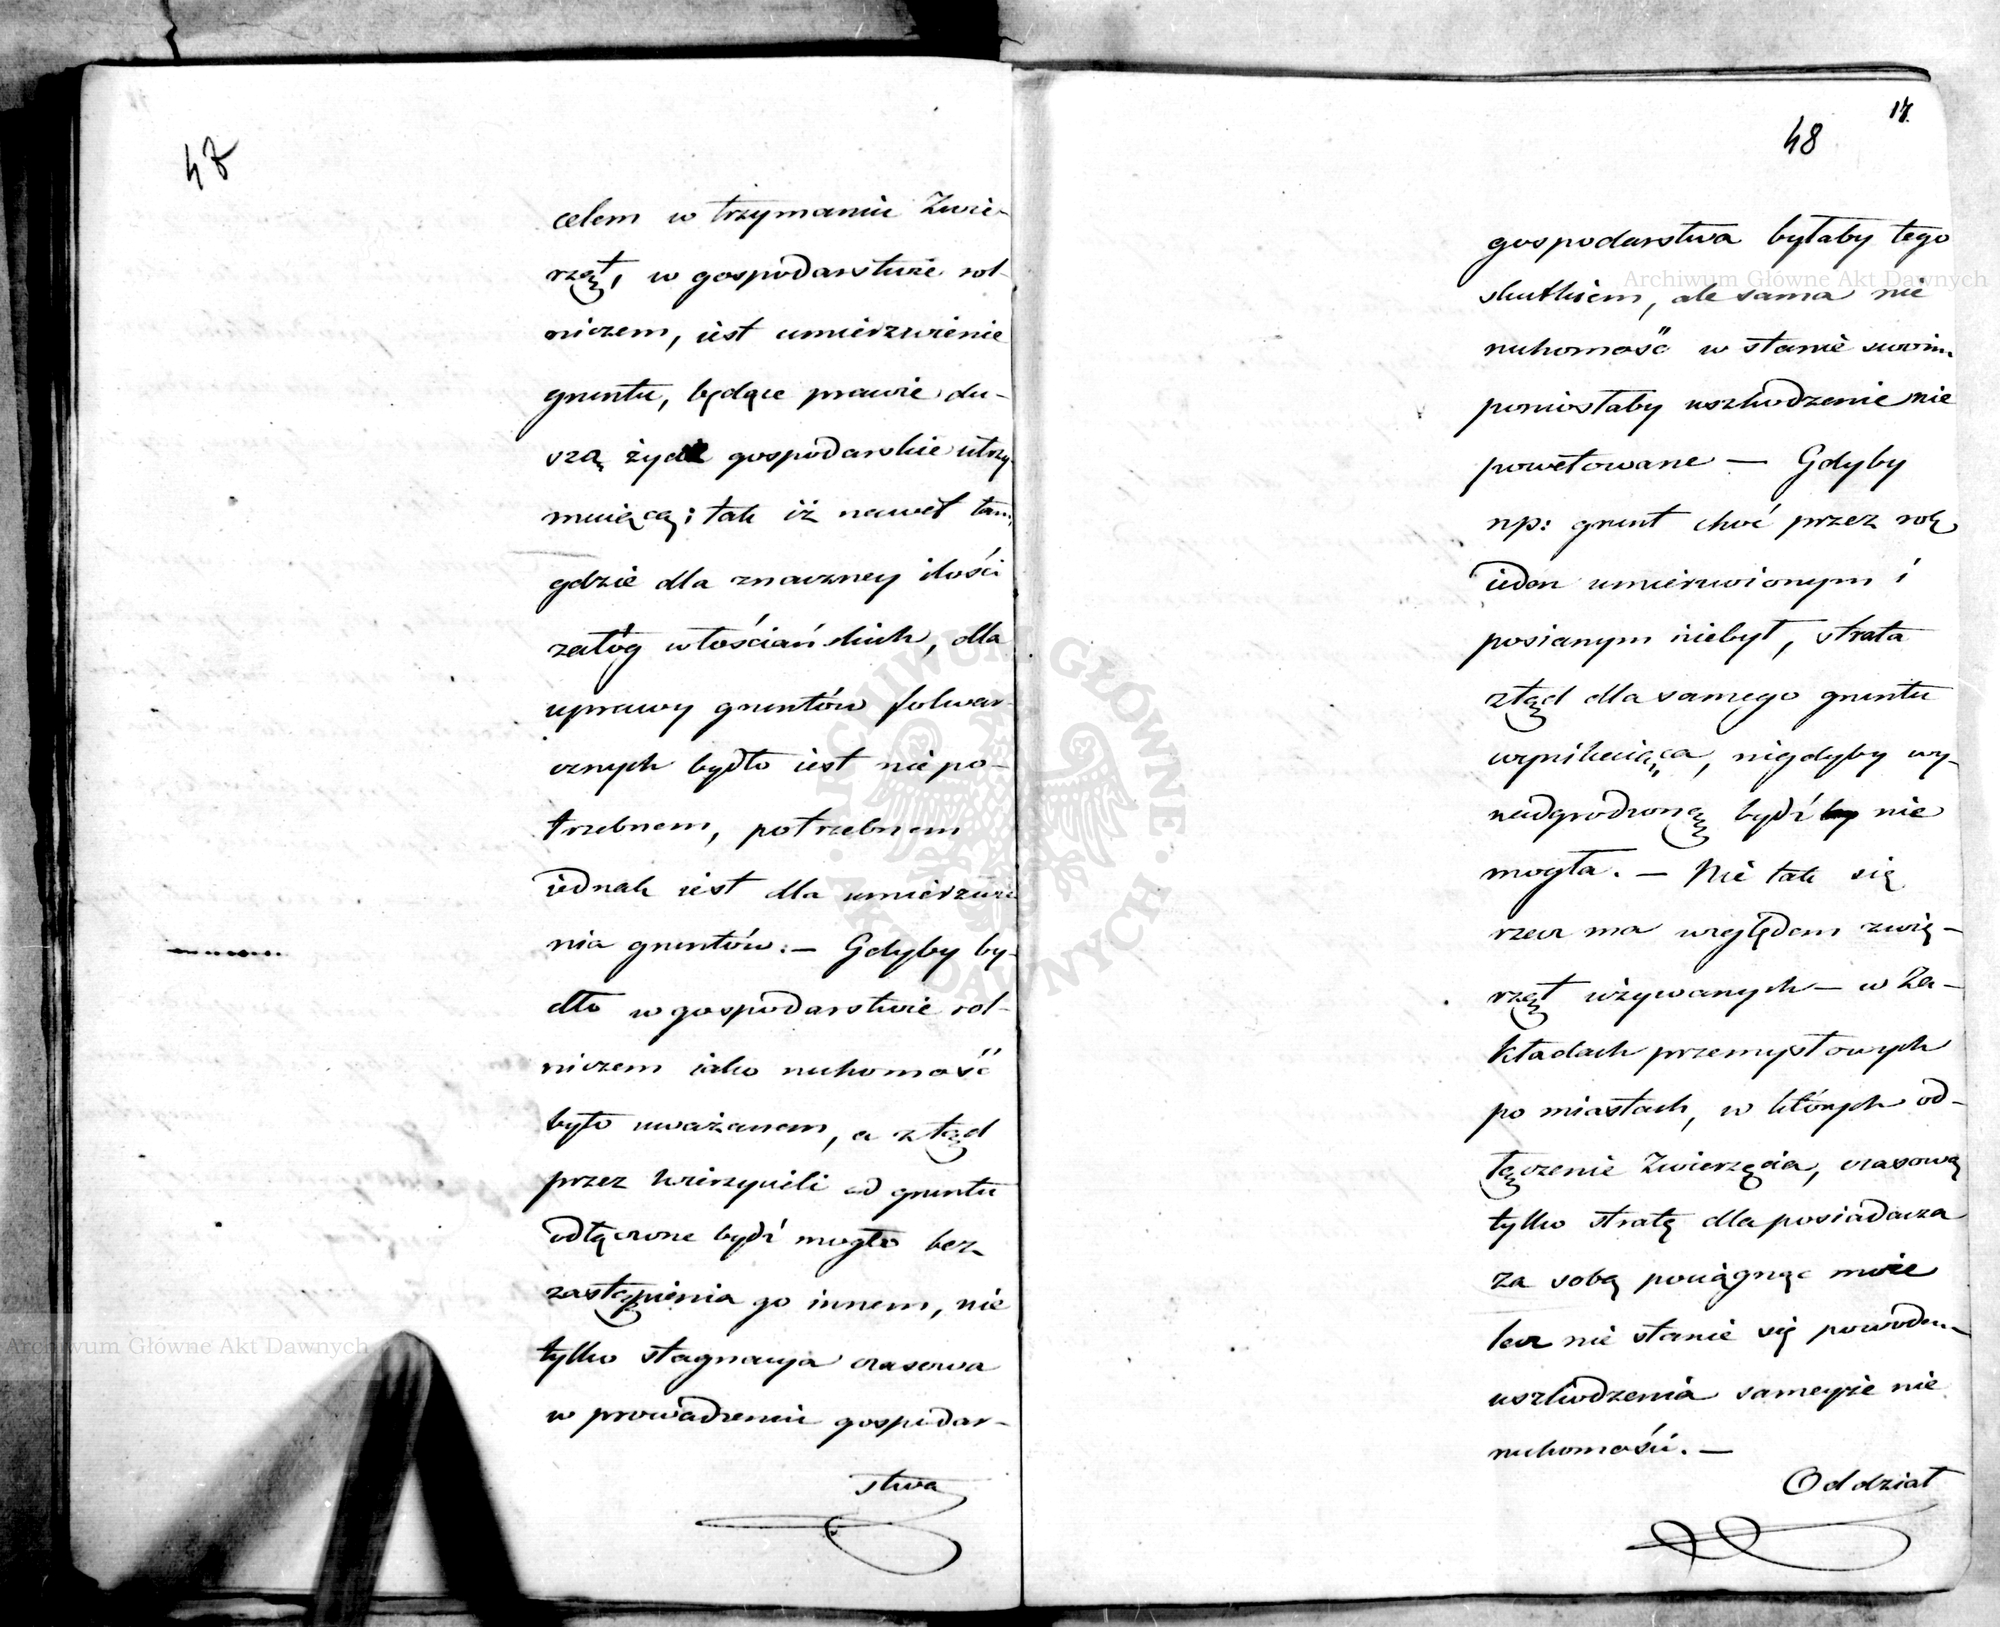 47
celem w trzymaniu Zwie-
rząt, w gospodarstwie rol-
niczem, iest umierzwienie
gruntu, będące prawie du-
szą życie gospodarskie utrzy-
muiącą; tak iż nawet tam,
gdzie dla znaczney ilości
załóg włościańskich, dla
uprawy gruntów folwar-
cznych bydło iest niepo-
trzebnem, potrzebnem
iednak iest dla umierzwie
nia gruntów. — Gdyby by-
dło w gospodarstwie rol-
niczem iako ruchomość
było uważanem, a ztąd
przez wierzycieli od gruntu
odłączone bydź mogło bez
zastąpienia go innem, nie
tylko stagnacya czasowa
w prowadzeniu gospodar-
stwa
17.
48
gospodarstwa byłaby tego
skutkiem, ale sama nie
ruchomość w stanie swoim
poniosłaby uszkodzenie nie
powetowane — Gdyby
np: grunt choć przez rok
ieden umierzwionym i
posianym niebył, strata
ztąd dla samego gruntu
wynikaiąca, nigdyby wy-
nadgrodzoną bydź nie
mogła. — Nie tak się
rzecz ma względem zwie-
rząt używanych — w Za-
kładach przemysłowych
po miastach, w których od-
łączenie Zwierzęcia, czasową
tylko stratę dla posiadacza
za sobą pociągnąć może
lecz nie stanie się powodem
uszkodzenia sameyże nie
ruchomości. —
Oddział
Archiwum Główne Akt Dawnych
Archiwum Główne Akt Dawnych
ARCHIWUM GŁÓWNE AKT DAWNYCH